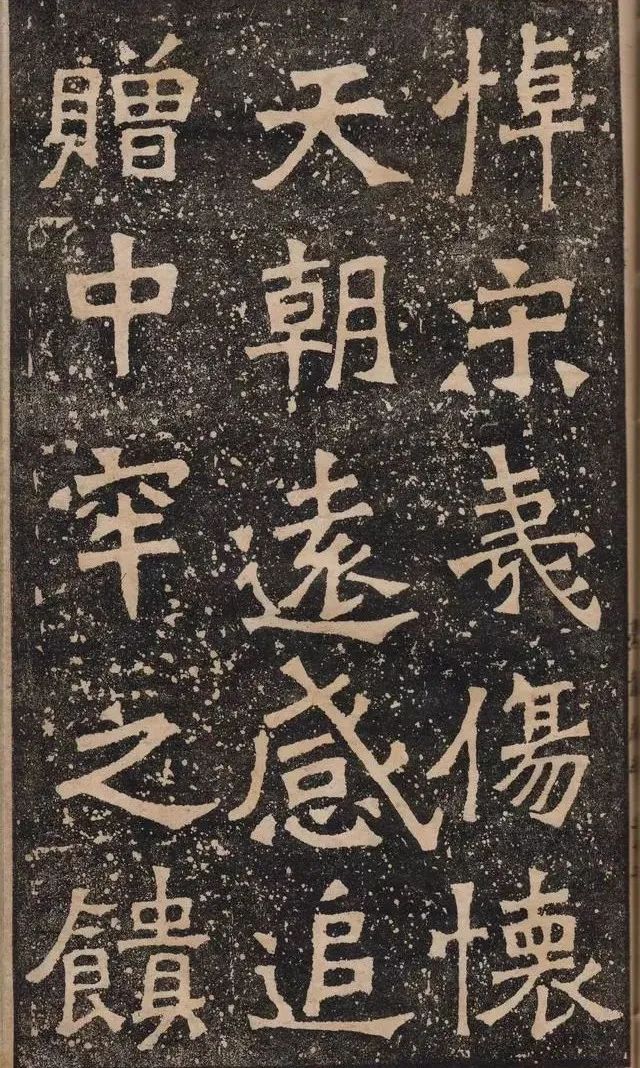 悼宋夷傷懷
天朝遠感追
贈中牢之饋